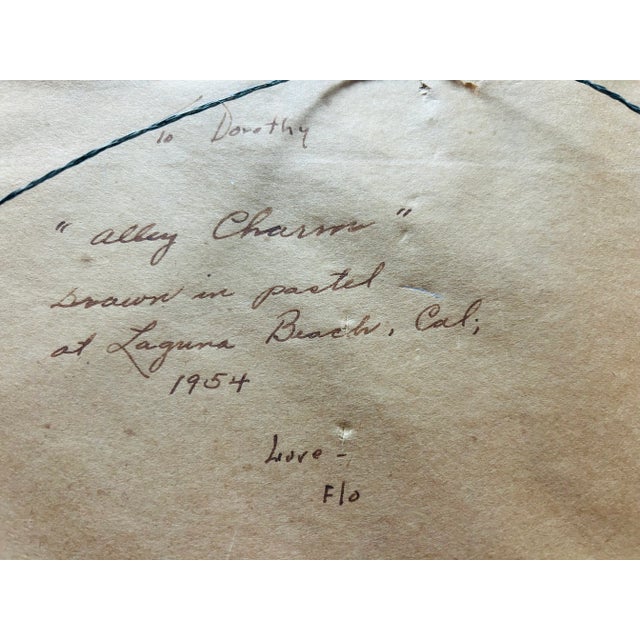 To Dorothy
"Alley Charm"
Drawn in pastel
at Laguna Beach, Cal;
1954
Love -
Flo